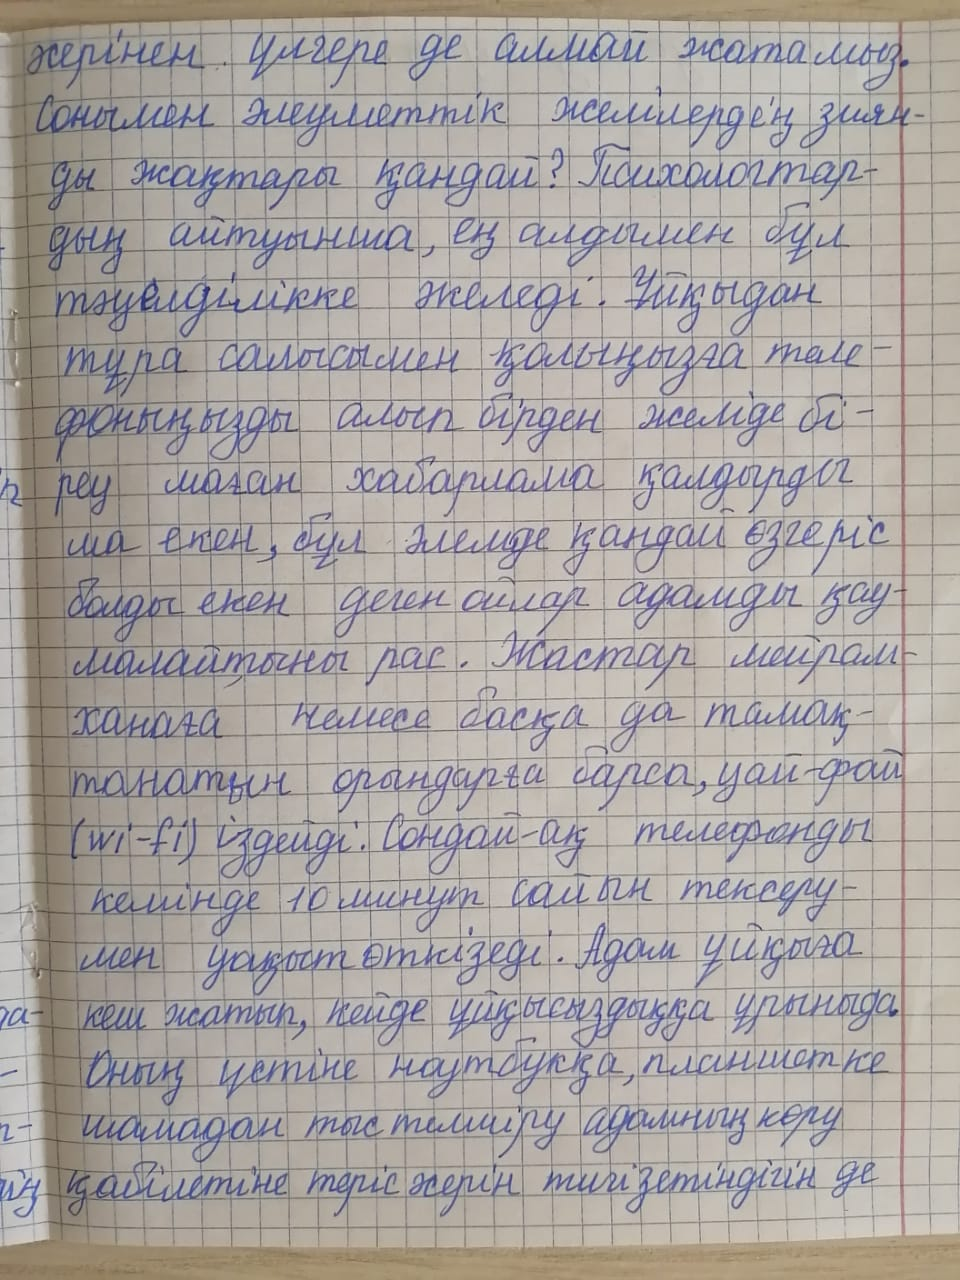 жерінен үлгере де алмай жатамыз.
Сонымен әлеуметтік желілердің зиян-
ды жақтары қандай? Психологтар-
дың айтуынша, ең алдымен бұл
тәуелділікке әкеледі. Ұйқыдан
тұра салысымен қолыңызға теле-
фоныңызды алып бірден желіде бі-
реу маған хабарлама қалдырды
ма екен, бұл әлемде қандай өзгеріс
болды екен деген ойлар адамды қау-
малайтыны рас. Жастар мейрам-
ханаға немесе басқа да тамақ-
танатын орындарға барса, уай-фай
(wi-fi) іздейді. Сондай-ақ телефонды
кемінде 10 минут сайын тексеру-
мен уақыт өткізеді. Адам ұйқыға
кеш жатып, кейде ұйқысыздыққа ұрыныда.
Оның үстіне ноутбукқа, планшетке
шамадан тыс телміру адамның көру
қабілетіне теріс жерін тигізетіндігін де